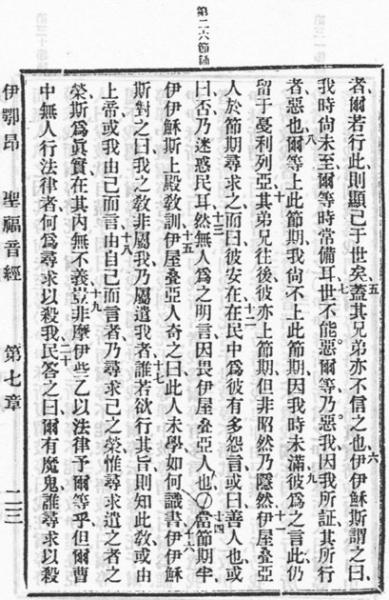 第二六節誦
者爾若行此則顯己于世矣蓋其兄弟亦不信之也伊伊穌斯謂之曰
我時尙未至爾等時常備耳世不能惡爾等乃惡我因我所証其所行
者惡也爾等上此節期我尙不上此節期因我時未滿彼爲之言此仍
留于戞利列亞其弟兄往後彼亦上節期但非昭然乃隱然伊屋叠亞
人於節期尋求之而曰彼安在在民中爲彼有多怨言或曰善人也或
曰否乃迷惑民耳然無人爲之明言因畏伊屋叠亞人也當節期半
伊伊穌斯上殿敎訓伊屋叠亞人奇之曰此人未學如何識書伊伊穌
斯對之曰我之敎非屬我乃屬遣我者誰若欲行其旨則知此敎或由
上帝或我由己而言由自己而言者乃尋求己之榮惟尋求遣之者之
榮斯爲眞實在其內無不義豈非摩伊些乙以法律予爾等乎但爾曹
中無人行法律者何爲尋求以殺我民答之曰爾有魔鬼誰尋求以殺
伊鄂昂 聖福音經 第七章 二三
五
六
七
八
九
十
十一
十二
十三
十四
十五
十六
十七
十八
十九
二十